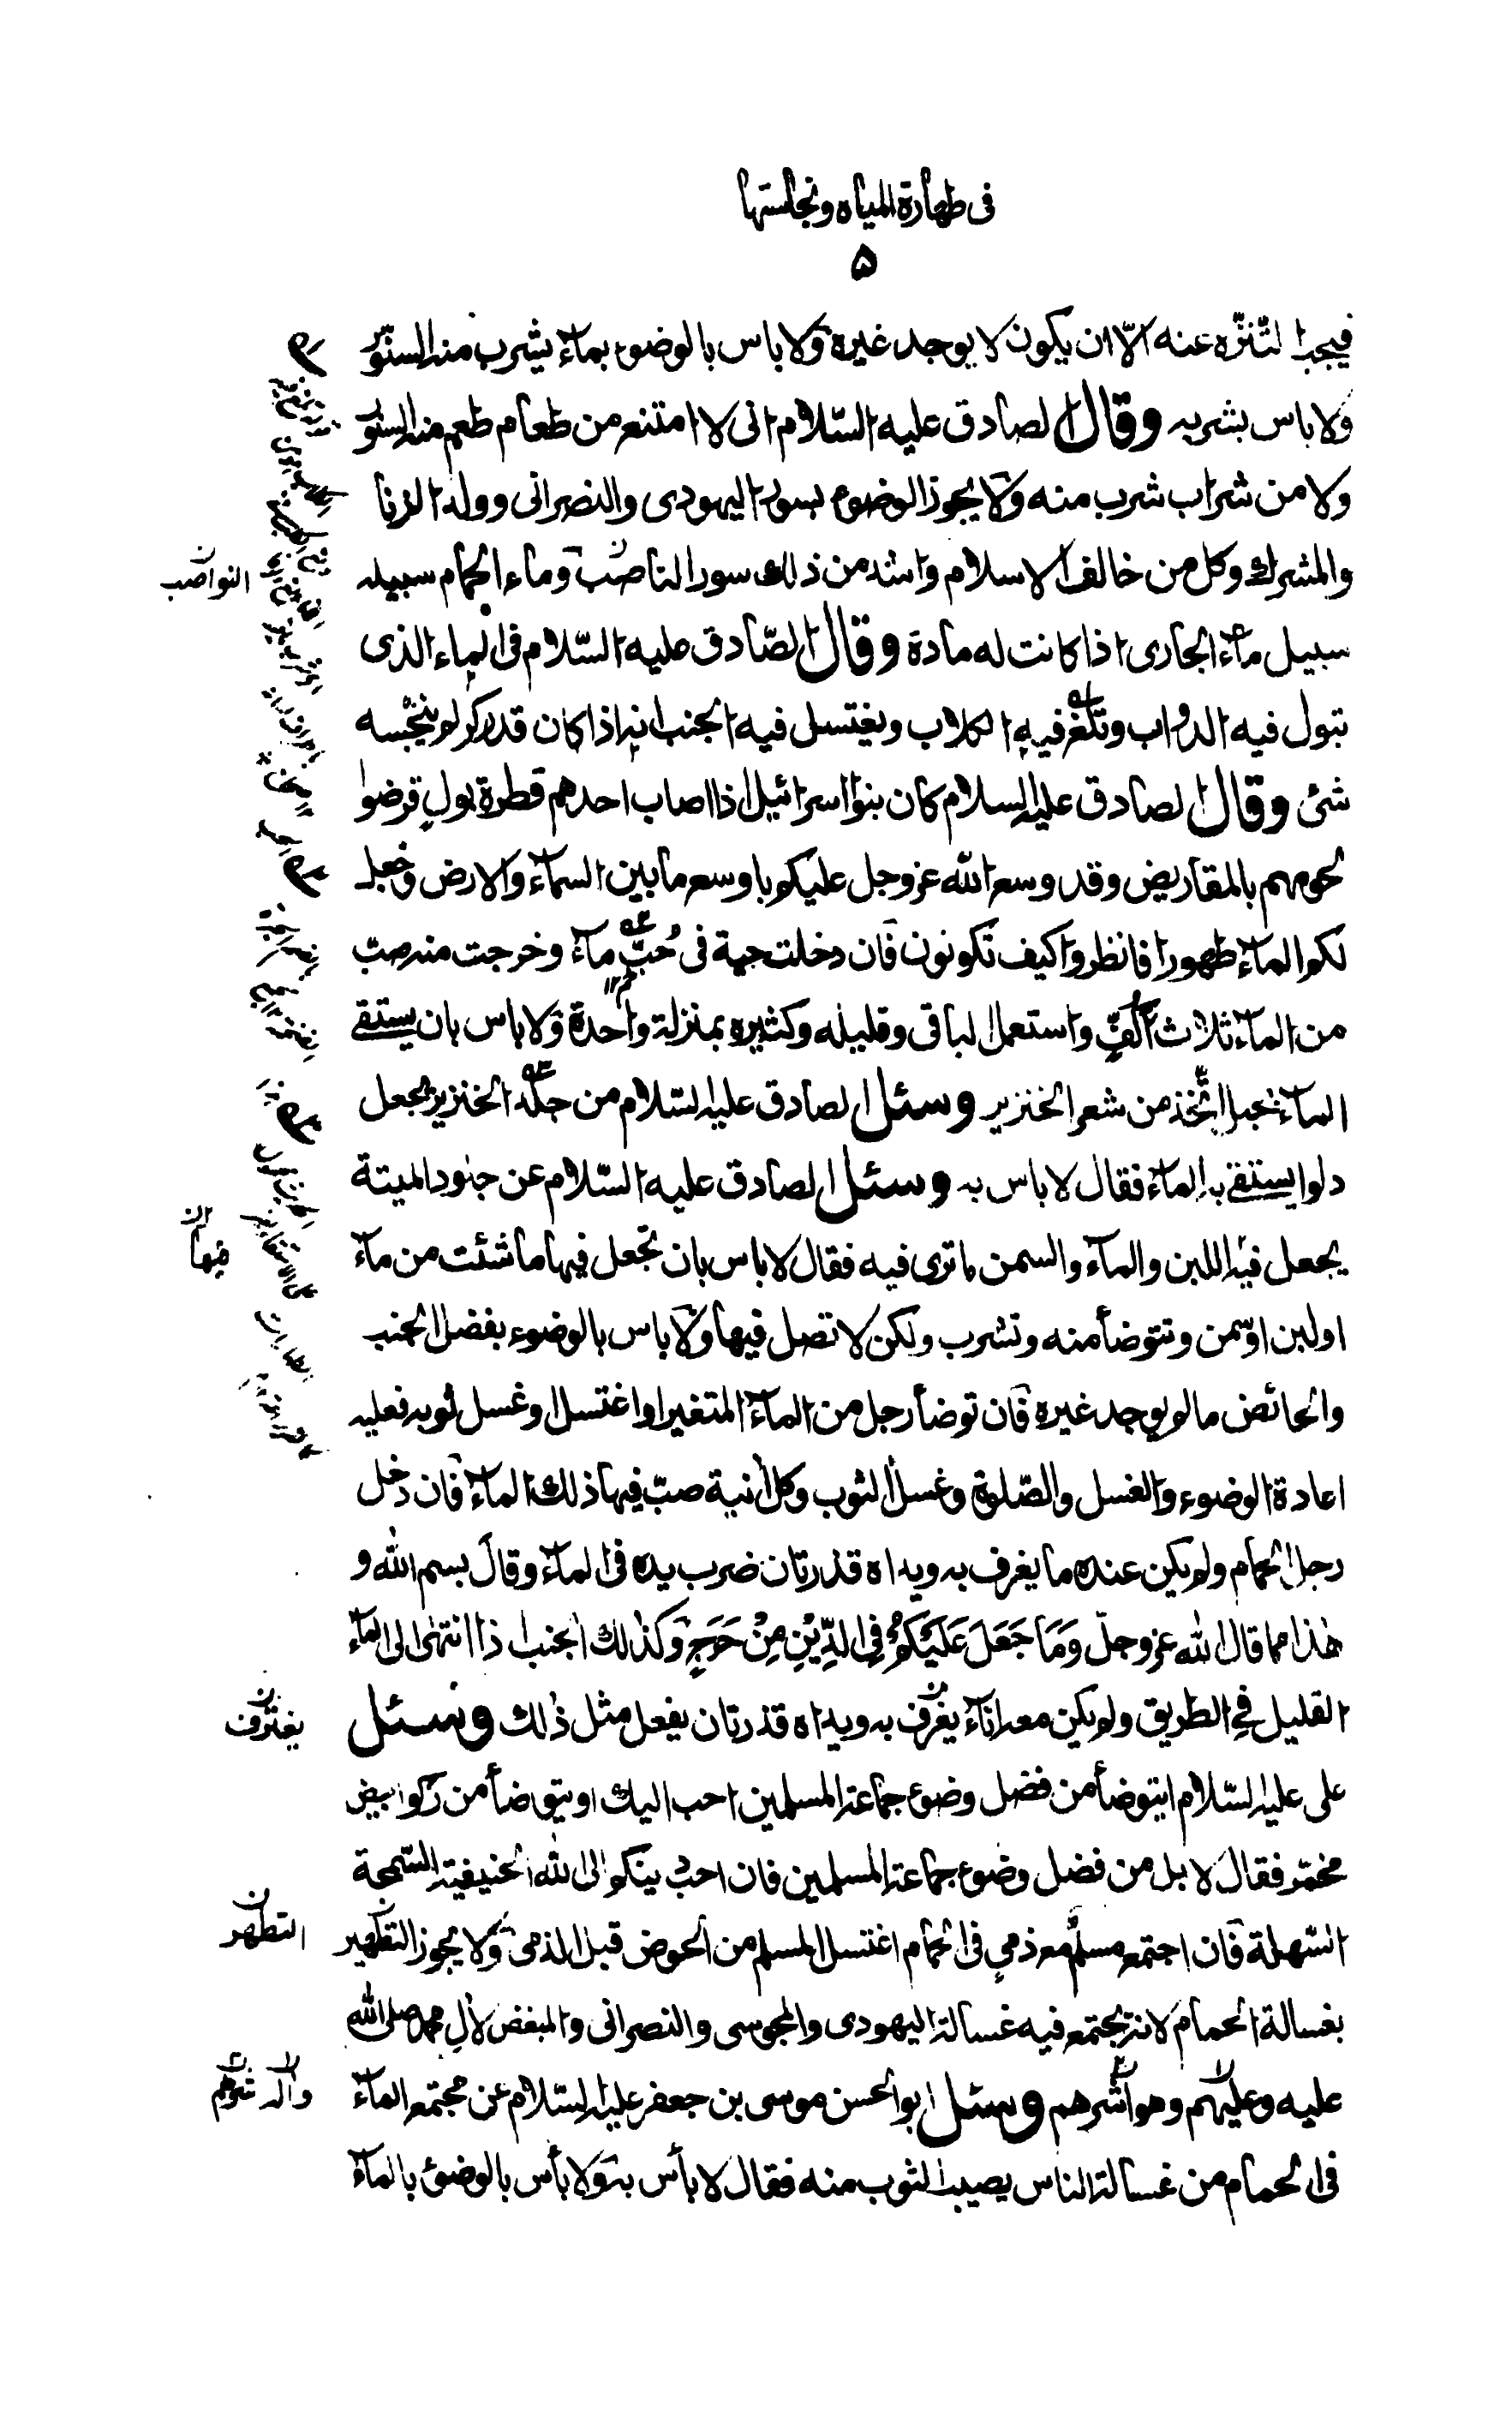 فى طهارة المياه ونجاستها
۵
فيجب التّنزّه عنه الّا ان يكون لا يوجد غيره ولا باس بالوضوء بماء يشرب منه السنّور
ولا باس بشربه وقال الصادق عليه السّلام انى لا امتنع من طعام طعم منه السنّور
ولا من شراب شرب منه ولا يجوز الوضوء بسور اليهودى والنصرانى وولد الزنا
والمشرك وكل من خالف الاسلام واشد من ذلك سور الناصب وماء الحمام سبيله
النواصب
سبيل ماء الجارى اذا كانت له مادة وقال الصّادق عليه السّلام فى الماء الذى
تبول فيه الدواب وتلغ فيه الكلاب ويغتسل فيه الجنب انه اذا كان قدر كر لم ينجّسه
شئ وقال الصادق عليه السلام كان بنوا اسرائيل اذا اصاب احدهم قطرة بول قرضوا
لحومهم بالمقاريض وقد وسع الله عز وجل عليكم باوسع ما بين السماء والارض وجعل
لكم الماء طهورا فانظروا كيف تكونون فان دخلت حية فى حُبّ ماء وخرجت منه صبّ
من الماء ثلاث اكفٍّ واستعمل الباقى وقليله وكثيره بمنزلة واحدة ولا باس بان يستقى
الماء بحبل اتّخذ من شعر الخنزير وسئل الصادق عليه السّلام من جلد الخنزير يجعل
دلوا يستقى به الماء فقال لا باس به وسئل الصادق عليه السّلام عن جلود الميتة
يجعل فيه اللبن والماء والسمن ما ترى فيه فقال لا باس بان تجعل فيها ما شئت من ماء
فيها
او لبن او سمن وتتوضأ منه وتشرب ولكن لا تصل فيها ولا باس بالوضوء بفضل الجنب
والحائض ما لم يوجد غيره فان توضأ رجل من الماء المتغير او اغتسل او غسل ثوبه فعليه
اعادة الوضوء والغسل والصّلوة وغسل الثوب وكل آنية صبّ فيها ذلك الماء فان دخل
رجل الحمام ولم يكن عنده ما يغرف به ويداه قذرتان ضرب يده فى الماء وقال بسم الله و
هذا مما قال الله عز وجلّ وَمَا جَعَلَ عَلَيْكُمْ فِى الدِّيْنِ مِنْ حَرَجٍ وكذلك الجنب اذا انتهى الى الماء
القليل فى الطريق ولم يكن معه اناء يغرف به ويداه قذرتان يفعل مثل ذلك وسئل
يغترف
على عليه السّلام ايتوضأ من فضل وضوء جماعة المسلمين احب اليك او يتوضأ من ركو ابيض
مخمّر فقال لا بل من فضل وضوء جماعة المسلمين فان احب دينكم الى الله الحنيفية السّمحة
السّهلة فان اجتمع مسلم مع ذمى فى الحمام اغتسل المسلم من الحوض قبل الذمى ولا يجوز التطهير
التطهر
بغسالة الحمام لانه يجتمع فيه غسالة اليهودى والمجوسى والنصرانى والمبغض لآل محمد صلى الله
عليه وعليهم وهو اشرهم وسئل ابو الحسن موسى بن جعفر عليه السّلام عن مجتمع الماء
وآله شرهم
فى الحمام من غسالة الناس يصيب الثوب منه فقال لا بأس به ولا بأس بالوضوء بالماء